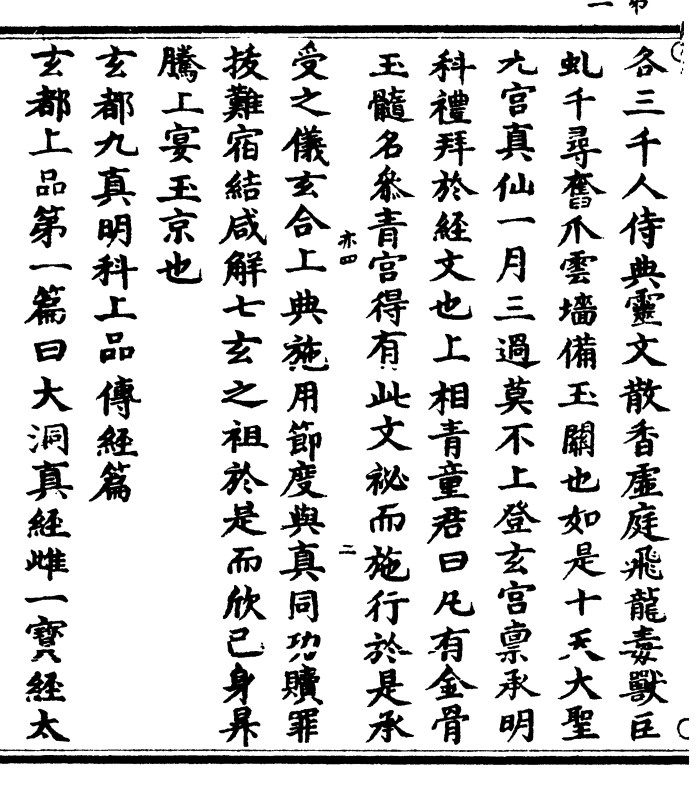 各三千人侍典靈文散香虛庭飛龍毒獸巨
虬千尋奮爪雲墻備玉關也如是十天大聖
九宮真仙一月三過莫不上登玄宮禀承明
科禮拜於経文也上相青童君曰凡有金骨
玉髓名叅青宮得有此文祕而施行於是承
亦四 二
受之儀玄合上典施用節度與真同功贖罪
拔難宿結咸解七玄之祖於是而欣己身昇
騰上宴玉京也
玄都九真明科上品傳経篇
玄都上品第一篇曰大洞真経雌一寶経太